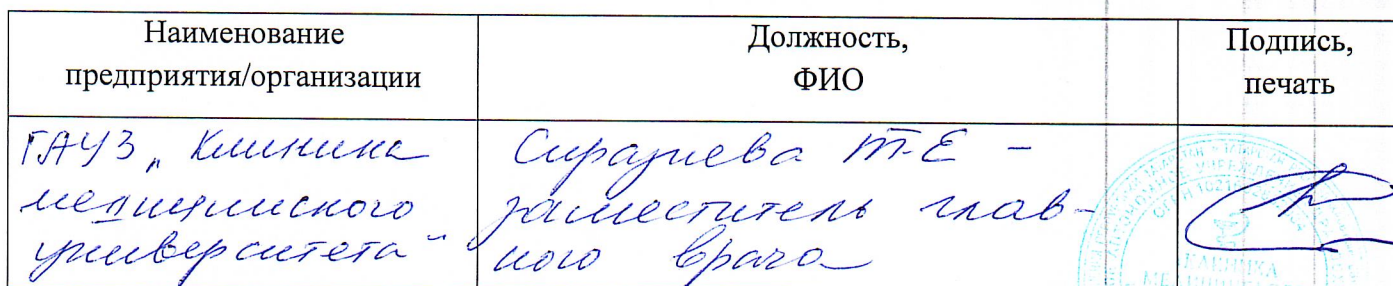 Наименование
предприятия/организации
Должность,
ФИО
Подпись,
печать
ГАУЗ "Клиника
медицинского
университета"
Сиразиева Т.Е -
заместитель глав-
ного врача
КЛИНИКА